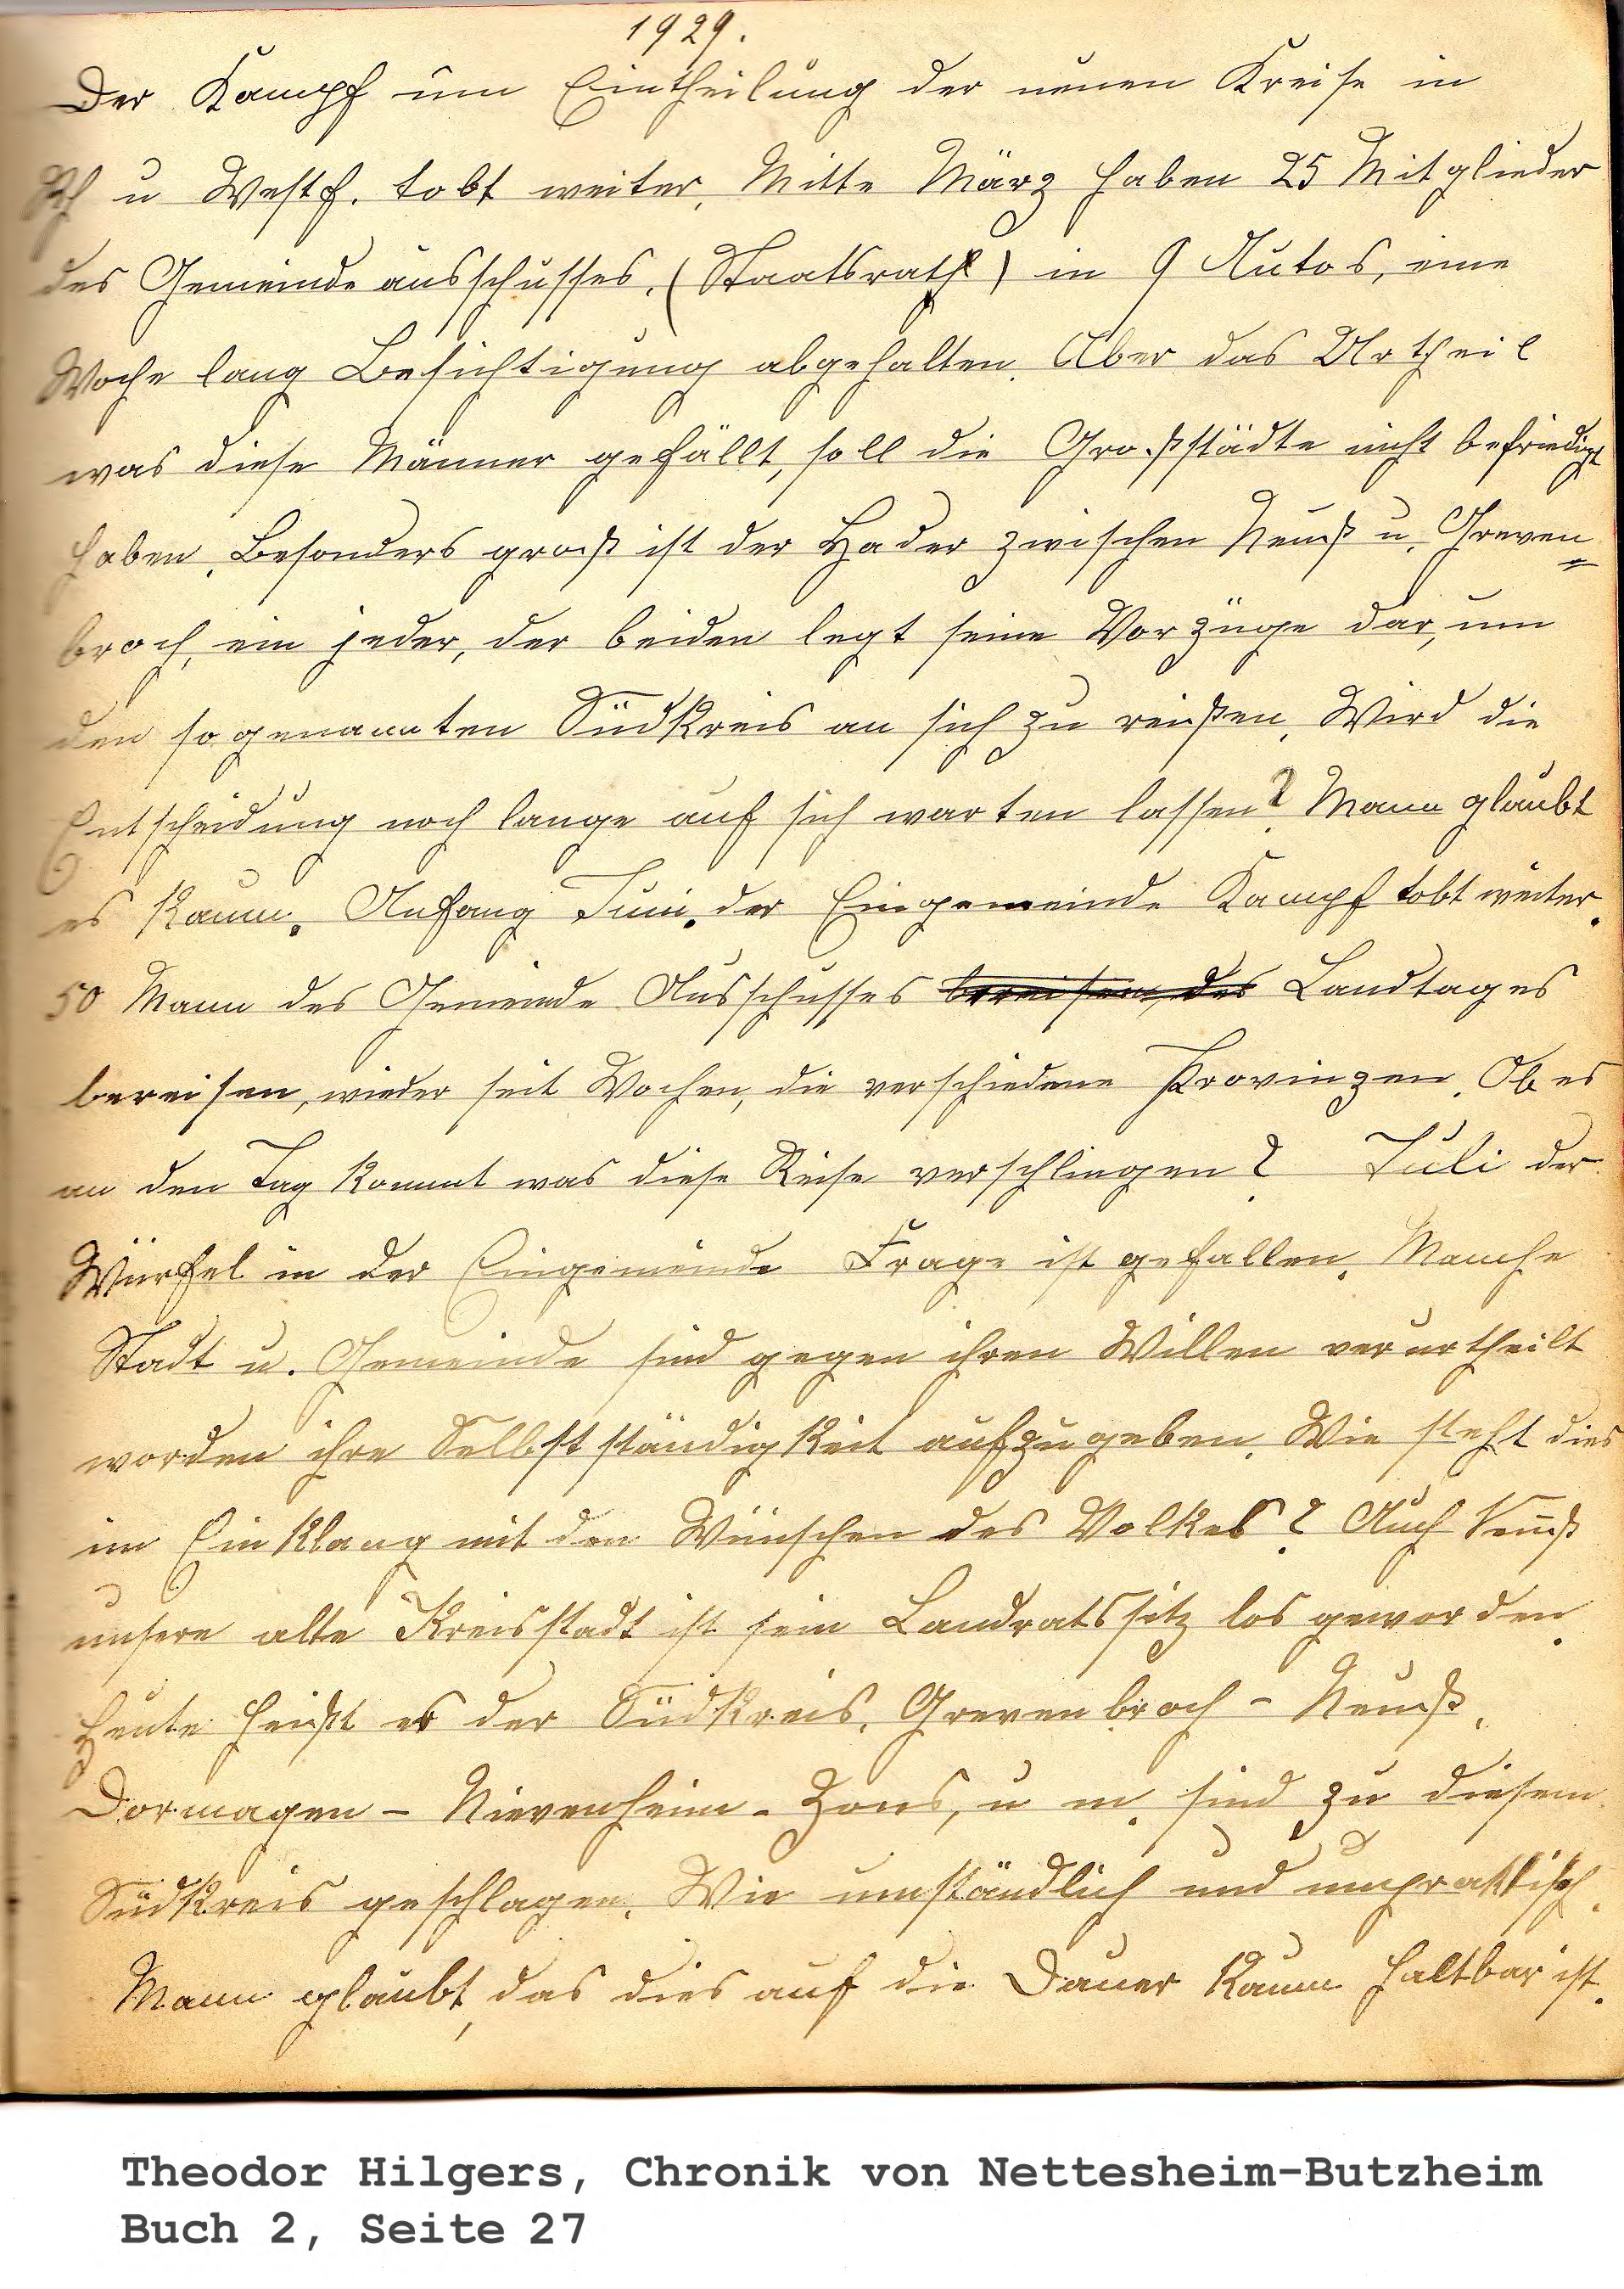 1929.
Der Kampf um Eintheilung der neuen Kreise in
Rh u Westf. tobt weiter. Mitte März haben 25 Mitglieder
des Gemeindeausschusses, (Staatsrath) in 9 Autos, eine
Woche lang Besichtigung abgehalten. Aber das Urtheil
was diese Männer gefällt, soll die Großstädte nicht befriedigt
haben. Besonders groß ist der Hader zwischen Neuß u. Greven=
broch, ein jeder, der beiden legt seine Vorzüge dar, um
den sogenannten Südkreis an sich zu reißen. Wird die
Entscheidung noch lange auf sich warten lassen? Mann glaubt
es kaum. Anfang Juni. der Eingemeinde Kampf tobt weiter.
50 Mann des Gemeinde Ausschusses bereisen, des Landtages
bereisen, wieder seit Wochen, die verschiedene Provinzen. Ob es
an den Tag kommt was diese Reise verschlingen? Juli der
Würfel in der Eingemeinde Frage ist gefallen. Manche
Stadt u. Gemeinde sind gegen ihren Willen verurtheilt
worden ihre Selbstständigkeit aufzugeben. Wie steht dies
im Einklang mit den Wünschen des Volkes? Auch Neuß
unsere alte Kreisstadt ist sein Landratssitz los geworden.
Heute heißt es der Südkreis, Grevenbroch - Neuß,
Dormagen - Nievenheim - Zons, u m. sind zu diesem
Südkreis geschlagen. Wie umständlich und unpraktisch.
Mann glaubt, das dies auf die Dauer kaum haltbar ist.
Theodor Hilgers, Chronik von Nettesheim-Butzheim
Buch 2, Seite 27